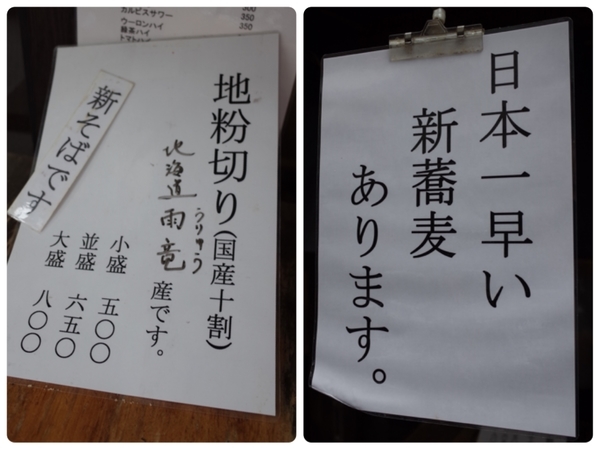 カルピスサワー 350
ウーロンハイ 350
緑茶ハイ
トマトハイ
地粉切り(国産十割)
北海道雨竜
うりゅう
産です。
小盛 五〇〇
並盛 六五〇
大盛 八〇〇
新そばです
日本一早い
新蕎麦
あります。